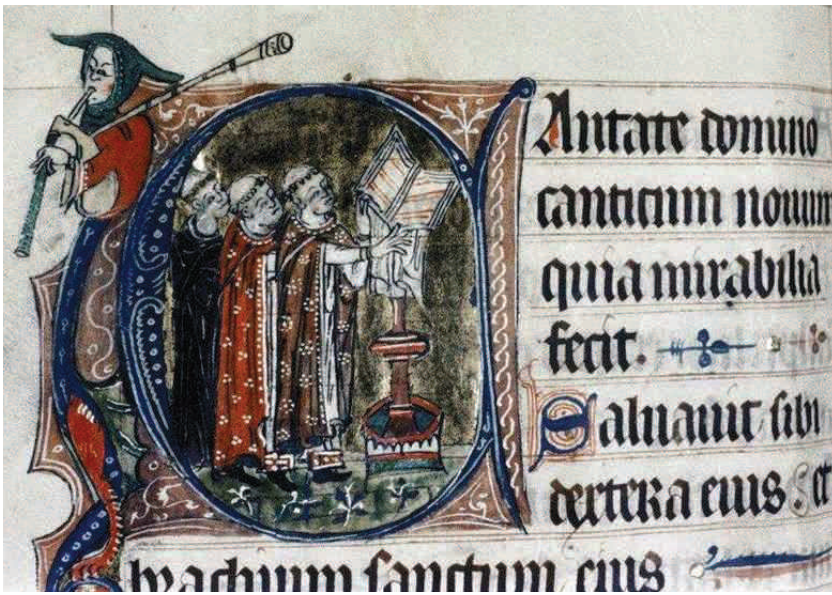 CAntate domino
canticum nouum
quia mirabilia
fecit.
Saluauit sibi
dextera eius et
brachium sanctum eius